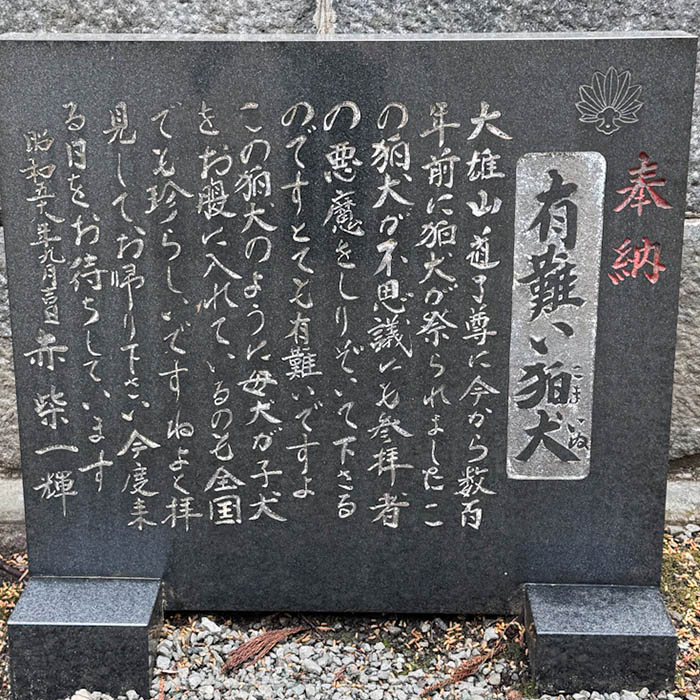 奉納
有難い狛犬
こまいぬ
大雄山道了尊に今から数百
年前に狛犬が祭られましたこ
の狛犬が不思議にも参拝者
の悪魔をしりぞいて下さる
のですとても有難いですよ
この狛犬のように母犬が子犬
をお股に入れているのも全国
でも珍らしいですねよく拝
見してお帰り下さい今度来
る日をお待ちしています
昭和五十八年九月吉日 赤柴一輝